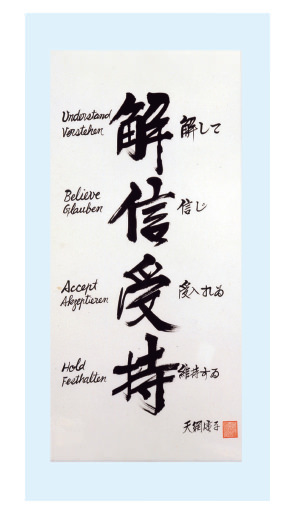 Understand
Verstehen
解
解して
Believe
Glauben
信
信じ
Accept
Akzeptieren
受
受入れる
Hold
Festhalten
持
維持する